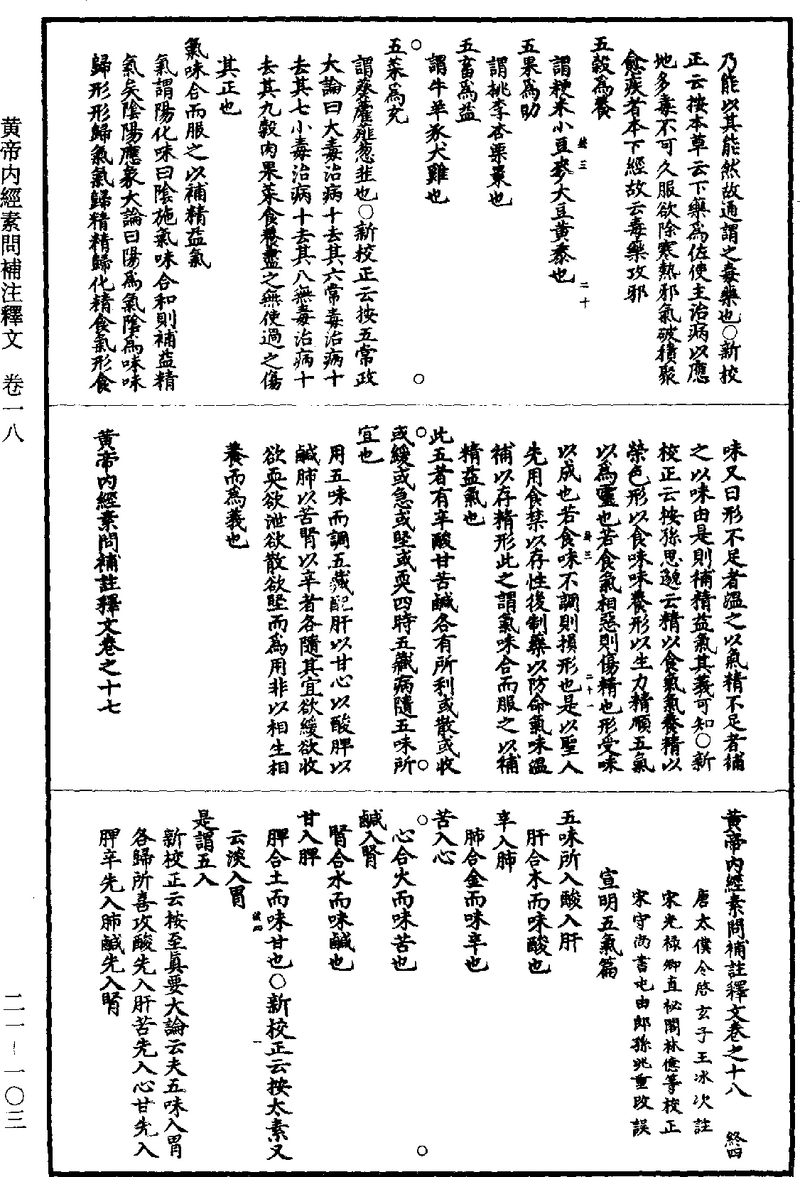 乃能以其能然故通謂之毒藥也○新校
正云按本草云下藥爲佐使主治病以應
地多毒不可久服欲除寒熱邪氣破積聚
愈疾者本下經故云毒藥攻邪
五穀爲養
謂粳米小豆麥大豆黃黍也
五果爲助
謂桃李杏栗棗也
五畜爲益
謂牛羊豕犬雞也
五菜爲充
謂葵藿薤葱韭也○新校正云按五常政
大論曰大毒治病十去其六常毒治病十
去其七小毒治病十去其八無毒治病十
去其九穀肉果菜食養盡之無使過之傷
其正也
氣味合而服之以補精益氣
氣謂陽化味曰陰施氣味合和則補益精
氣矣陰陽應象大論曰陽爲氣陰爲味味
歸形形歸氣氣歸精精歸化精食氣形食
味又曰形不足者溫之以氣精不足者補
之以味由是則補精益氣其義可知○新
校正云按孫思邈云精以食氣氣養精以
榮色形以食味味養形以生力精順五氣
以爲靈也若食氣相惡則傷精也形受味
以成也若食味不調則損形也是以聖人
先用食禁以存性後制藥以防命氣味溫
補以存精形此之謂氣味合而服之以補
精益氣也
此五者有辛酸甘苦鹹各有所利或散或收
或緩或急或堅或耎四時五藏病隨五味所
宜也
用五味而調五藏配肝以甘心以酸脾以
鹹肺以苦腎以辛者各隨其宜欲緩欲收
欲耎欲泄欲散欲堅而爲用非以相生相
養而爲義也
黃帝內經素問補註釋文卷之十七
黃帝內經素問補註釋文卷之十八 終四
唐太僕令啓玄子王冰次註
宋光祿卿直祕閣林億等校正
宋守尚書屯田郎孫兆重改誤
宣明五氣篇
五味所入酸入肝
肝合木而味酸也
辛入肺
肺合金而味辛也
苦入心
心合火而味苦也
鹹入腎
腎合水而味鹹也
甘入脾
脾合土而味甘也○新校正云按太素又
云淡入胃
是謂五入
新校正云按至眞要大論云夫五味入胃
各歸所喜攻酸先入肝苦先入心甘先入
脾辛先入肺鹹先入腎
黄帝內經素問補注釋文 卷一八
二一—一〇三